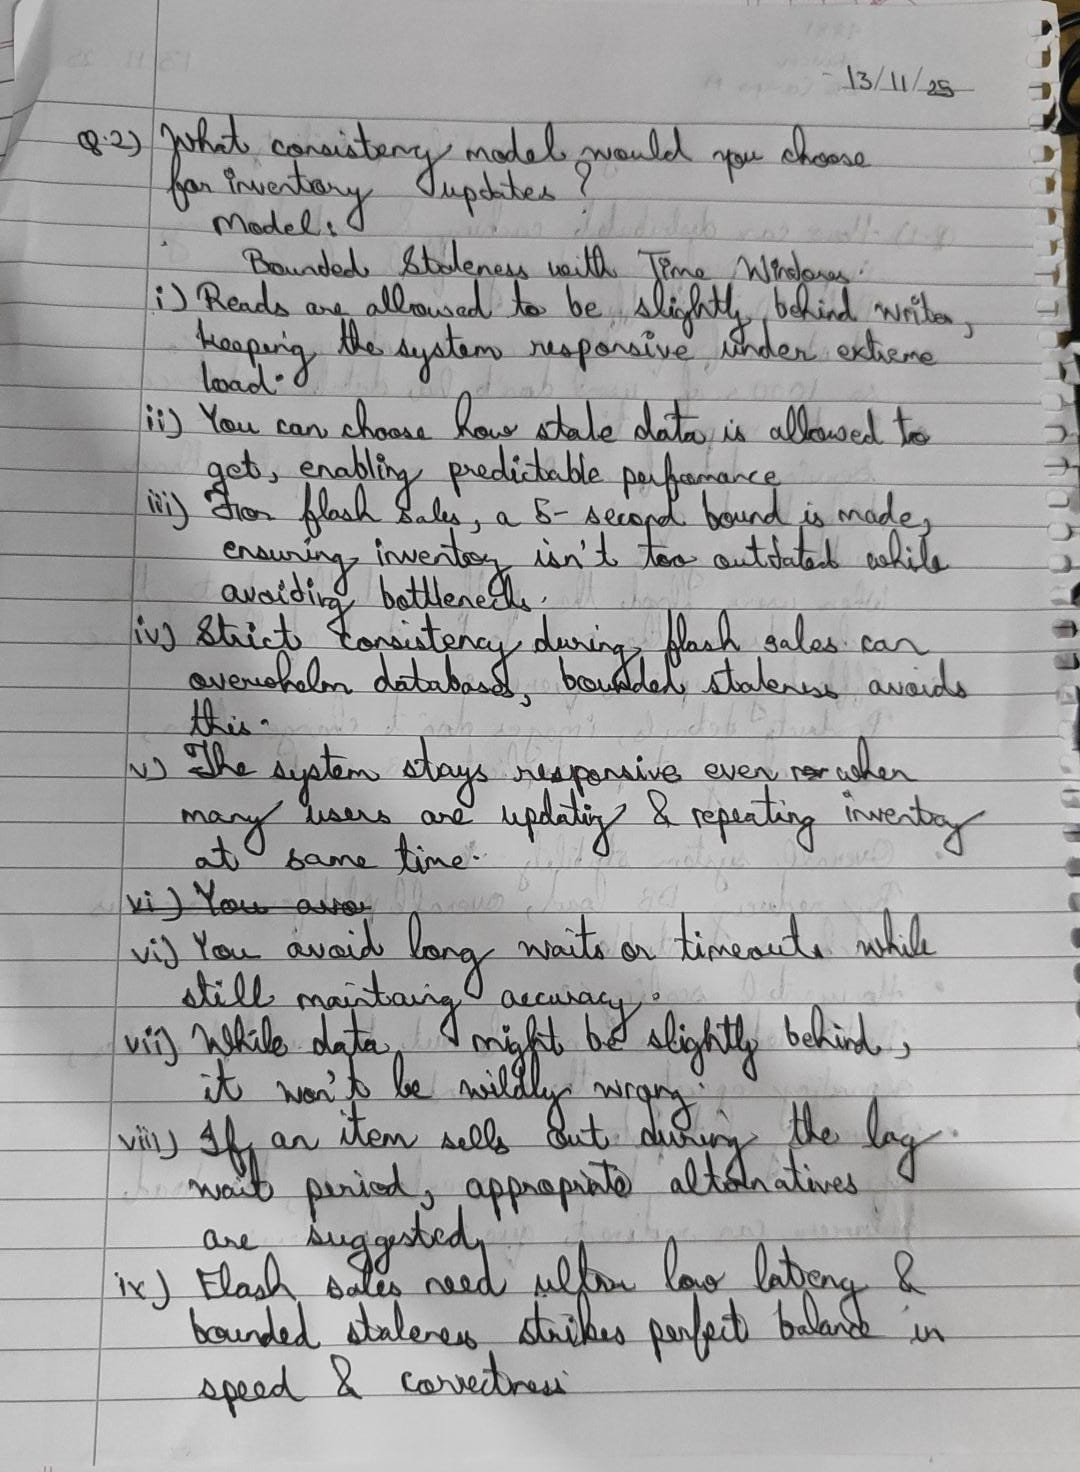 13/11/25
Q.2) What consistency model would you choose
for inventory updates?
Model:
Bounded Staleness with Time Windows.
i) Reads are allowed to be slightly behind writes,
keeping the system responsive under extreme
load.
ii) You can choose how stale data is allowed to
get, enabling predictable performance
iii) For flash sales, a 5-second bound is made,
ensuring inventory isn't too outdated while
avoiding bottlenecks.
iv) Strict consistency during flash sales can
overwhelm databases, bounded staleness avoids
this.
v) The system stays responsive even when
many users are updating & repeating inventory
at same time.
vi) You
vi) You avoid long waits or timeouts while
still maintaing accuracy.
vii) While data might be slightly behind,
it won't be wildly wrong.
viii) If an item sells out during the lag
wait period, appropriate alternatives
are suggested,
ix) Flash sales need ultra low lateny &
bounded staleness strikes perfect balance in
speed & correctness